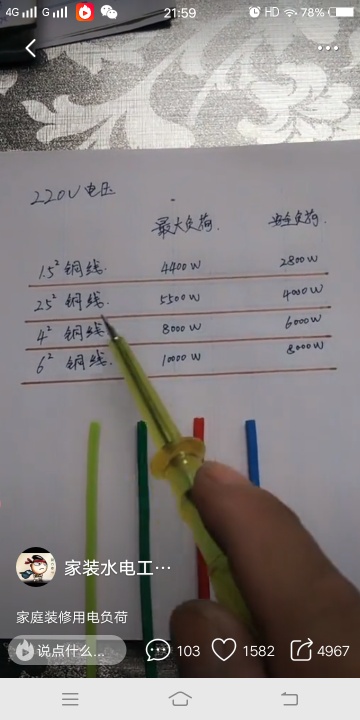 4G G 21:59 HD 78%
220V电压
最大负荷. 安全负荷.
1.5² 铜线. 4400W 2800W
2.5² 铜线. 5500W 4000W
4² 铜线. 8000W 6000W
6² 铜线. 10000W 8000W
家装水电工…
家庭装修用电负荷
说点什么... 103 1582 4967